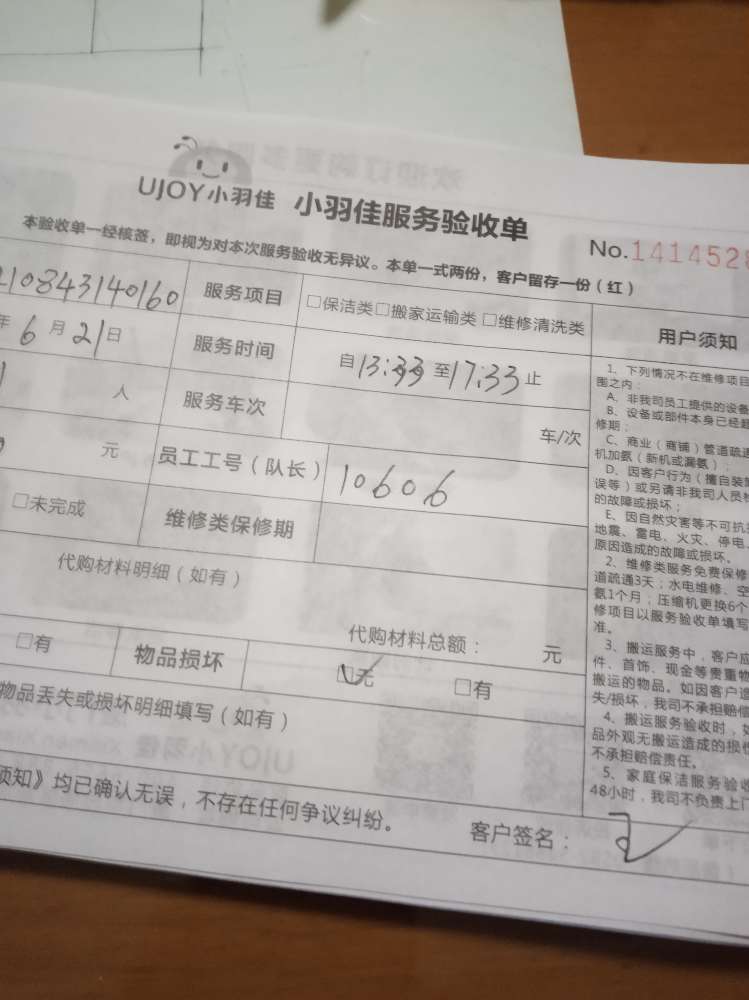 UJOY小羽佳 小羽佳服务验收单
No.141452
本验收单一经核签，即视为对本次服务验收无异议。本单一式两份，客户留存一份（红）
210843140160 服务项目 □保洁类□搬家运输类 □维修清洗类
年 6 月 21 日 服务时间 自13:33 至17:33止
人 服务车次 车/次
元 员工工号（队长） 10606
□未完成 维修类保修期
代购材料明细（如有）
代购材料总额： 元
□有 物品损坏 □无 □有
物品丢失或损坏明细填写（如有）
须知》均已确认无误，不存在任何争议纠纷。
客户签名：
用户须知
1、下列情况不在维修项目
围之内：
A、非我司员工提供的设备
B、设备或部件本身已经超
修期；
C、商业（商铺）管道疏通
机加氨（新机或漏氨）；
D、因客户行为（擅自装
误等）或另请非我司人员
的故障或损坏；
E、因自然灾害等不可抗
地震、雷电、火灾、停电
原因造成的故障或损坏。
2、维修类服务免费保修
道疏通3天；水电维修、空
氨1个月；压缩机更换6个
修项目以服务验收单填写
准。
3、搬运服务中，客户应
件、首饰、现金等贵重物
搬运的物品。如因客户遗
失/损坏，我司不承担赔偿
4、搬运服务验收时，如
品外观无搬运造成的损
不承担赔偿责任。
5、家庭保洁服务验收
48小时，我司不负责上门